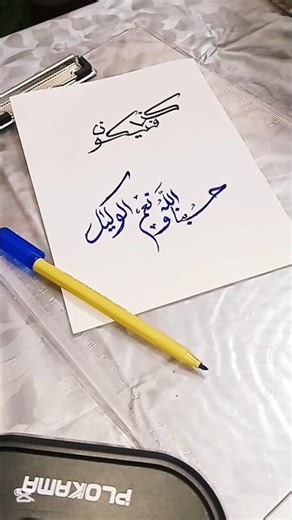 كن فيكون
حسبنا الله و نعم الوكيل
PLOKAMA